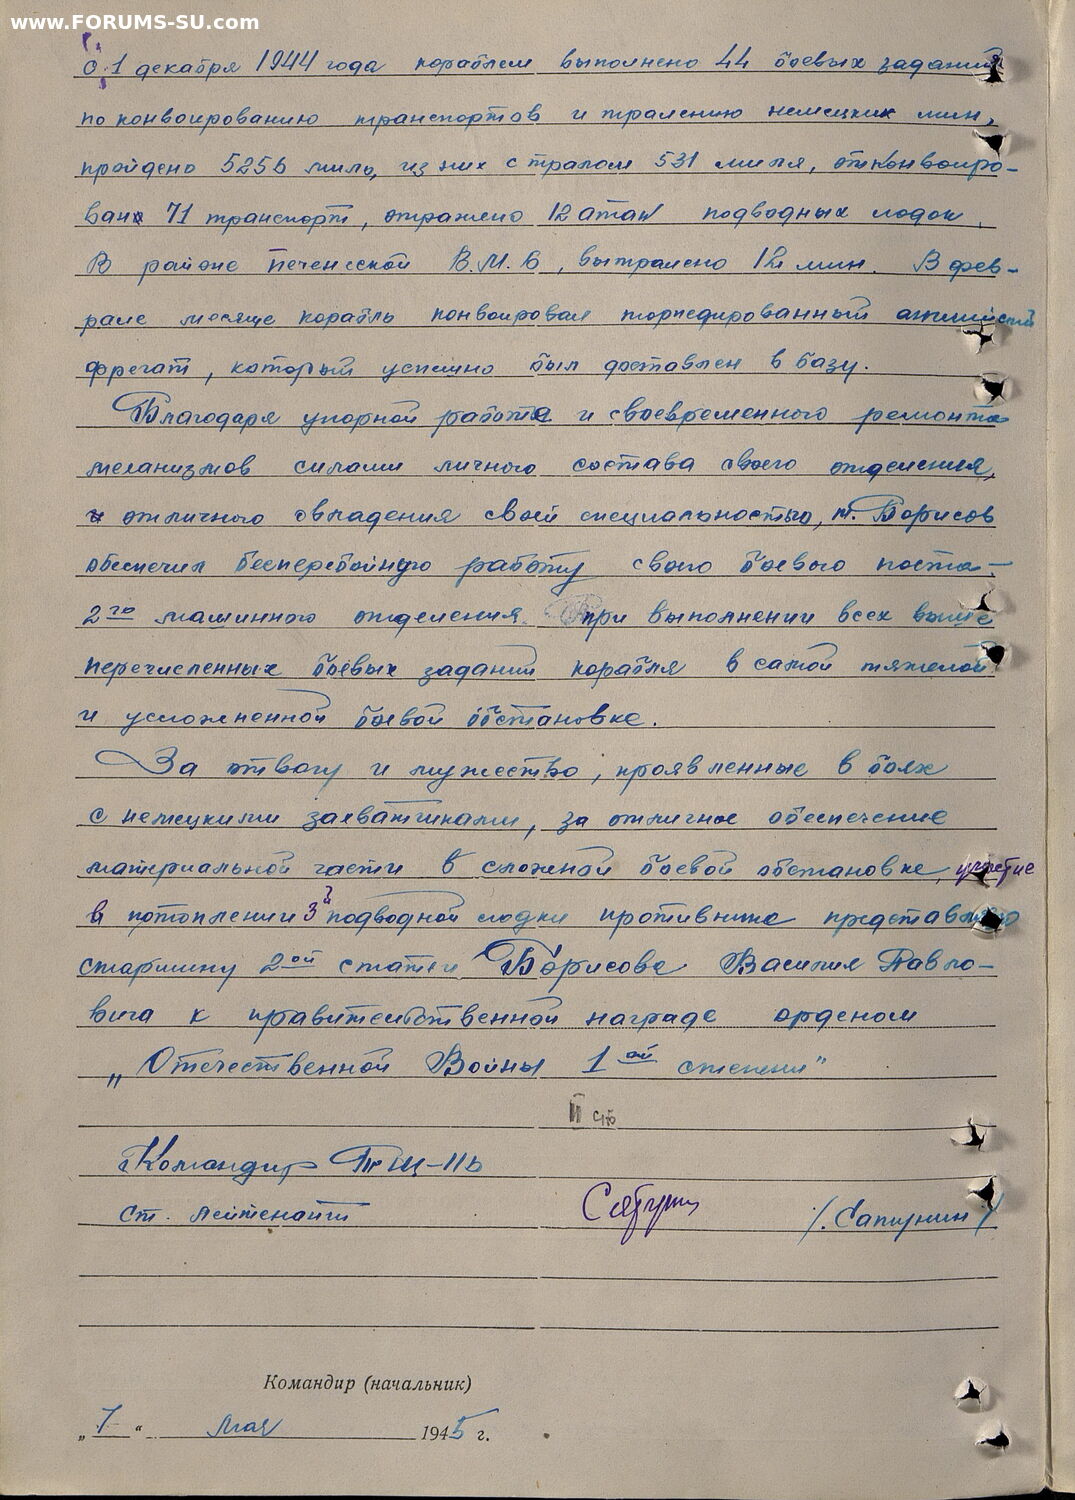 www.FORUMS-SU.com
С 1 декабря 1944 года кораблем выполнено 44 боевых заданий
по конвоированию транспортов и тралению немецких мин,
пройдено 5256 миль, из них с тралом 531 миля, отконвоиро-
ван 71 транспорт, отражено 12 атак подводных лодок.
В районе Печенгской В.М.Б, вытралено 12 мин. В фев-
рале месяце корабль конвоировал торпедированный английский
фрегат, который успешно был доставлен в базу.
Благодаря упорной работе и своевременного ремонта
механизмов силами личного состава своего отделения,
и отличного овладения своей специальностью, т. Борисов
обеспечил бесперебойную работу своего боевого поста-
2го машинного отделения. При выполнении всех выше
перечисленных боевых заданий корабля в самой тяжелой
и усложненной боевой обстановке.
За отвагу и мужество, проявленные в боях
с немецкими захватчиками, за отличное обеспечение
материальной части в сложной боевой обстановке, участие
в потоплении 3й подводной лодки противника представляю
старшину 2ой статьи Борисова Василия Павло-
вича к правительственной награде орденом
„Отечественной Войны 1ой степени"
II ст
Командир ТЩ-116
ст. лейтенант /. Бабанин/
Командир (начальник)
„7" мая 1945 г.